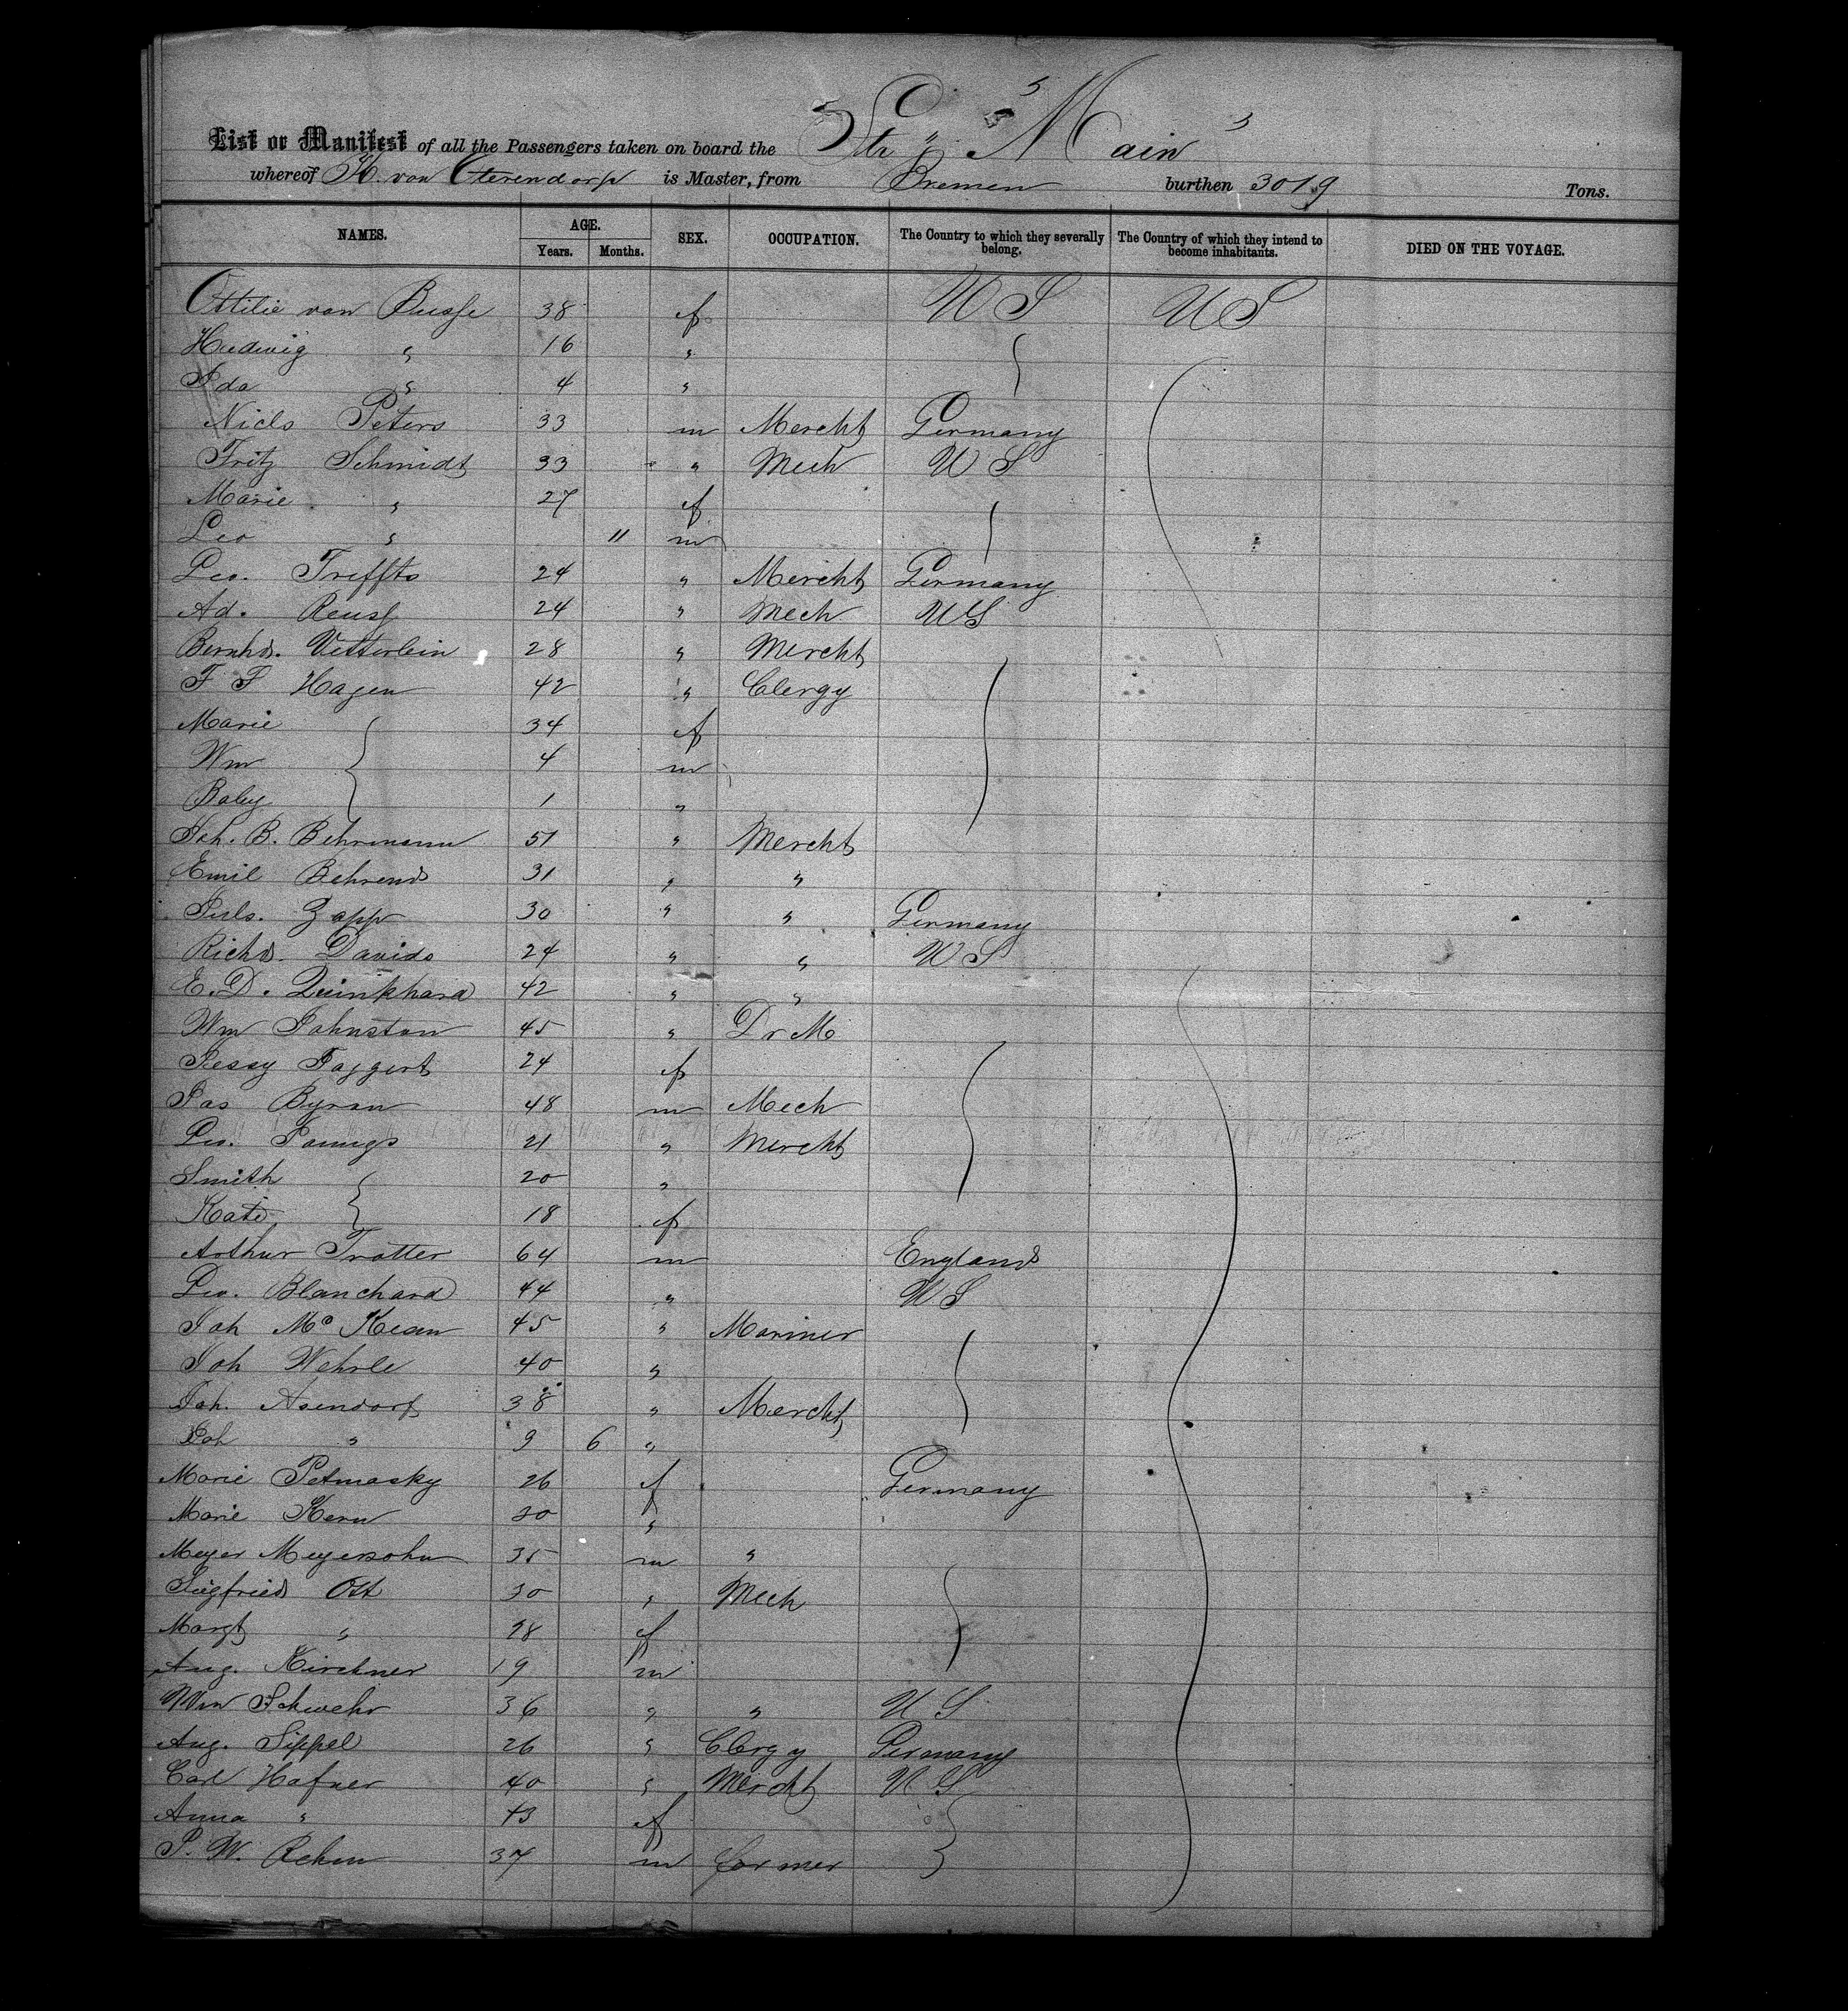 List or Manifest of all the Passengers taken on board the Str "Main"
whereof H. von Oterendorp is Master, from Bremen burthen 3019 Tons.
NAMES. AGE. Years. Months. SEX. OCCUPATION. The Country to which they severally belong. The Country of which they intend to become inhabitants. DIED ON THE VOYAGE.
Ottilie von Busse 38 f U S U S
Hedwig " 16 "
Ida " 4 "
Niclo Peters 33 m Mercht Germany
Fritz Schmidt 33 " Mech U S
Marie " 27 f
Leo " 11 m
Geo. Treffts 24 " Mercht Germany
Ad. Reuss 24 " Mech U S
Bernhd. Vetterlein 28 " Mercht
F F Hagen 42 " Clergy
Marie 34 f
Wm 4 m
Baby 1 "
Joh. B. Behrmann 51 " Mercht
Emil Behrend 31 " "
Juls. Zapp 30 " " Germany
Richd. Davids 24 " " U S
E. D. Quinkhard 42 " "
Wm Johnston 45 " Dr M
Jessy Taggert 24 f
Jas Byran 48 m Mech
Geo. 21 " Mercht
Smith 20 "
Kate 18 f
Arthur Trotter 64 m England
Geo. Blanchard 44 " U S
Joh McKean 45 " Mariner
Joh Wehrle 40 "
Joh. Asendorf 38 " Mercht
Joh " 9 6 "
Marie Petmasky 26 f Germany
Marie Kern 30 "
Meyer Meyersohn 35 m "
Siegfried Ott 30 " Mech
Margt " 28 f
Aug. Kirchner 19 m
Wm Schwehr 36 " " U S
Aug. Sippel 26 " Clergy Germany
Carl Hafner 40 " Mercht U S
Anna " 43 f
P. W. Rehm 37 m farmer